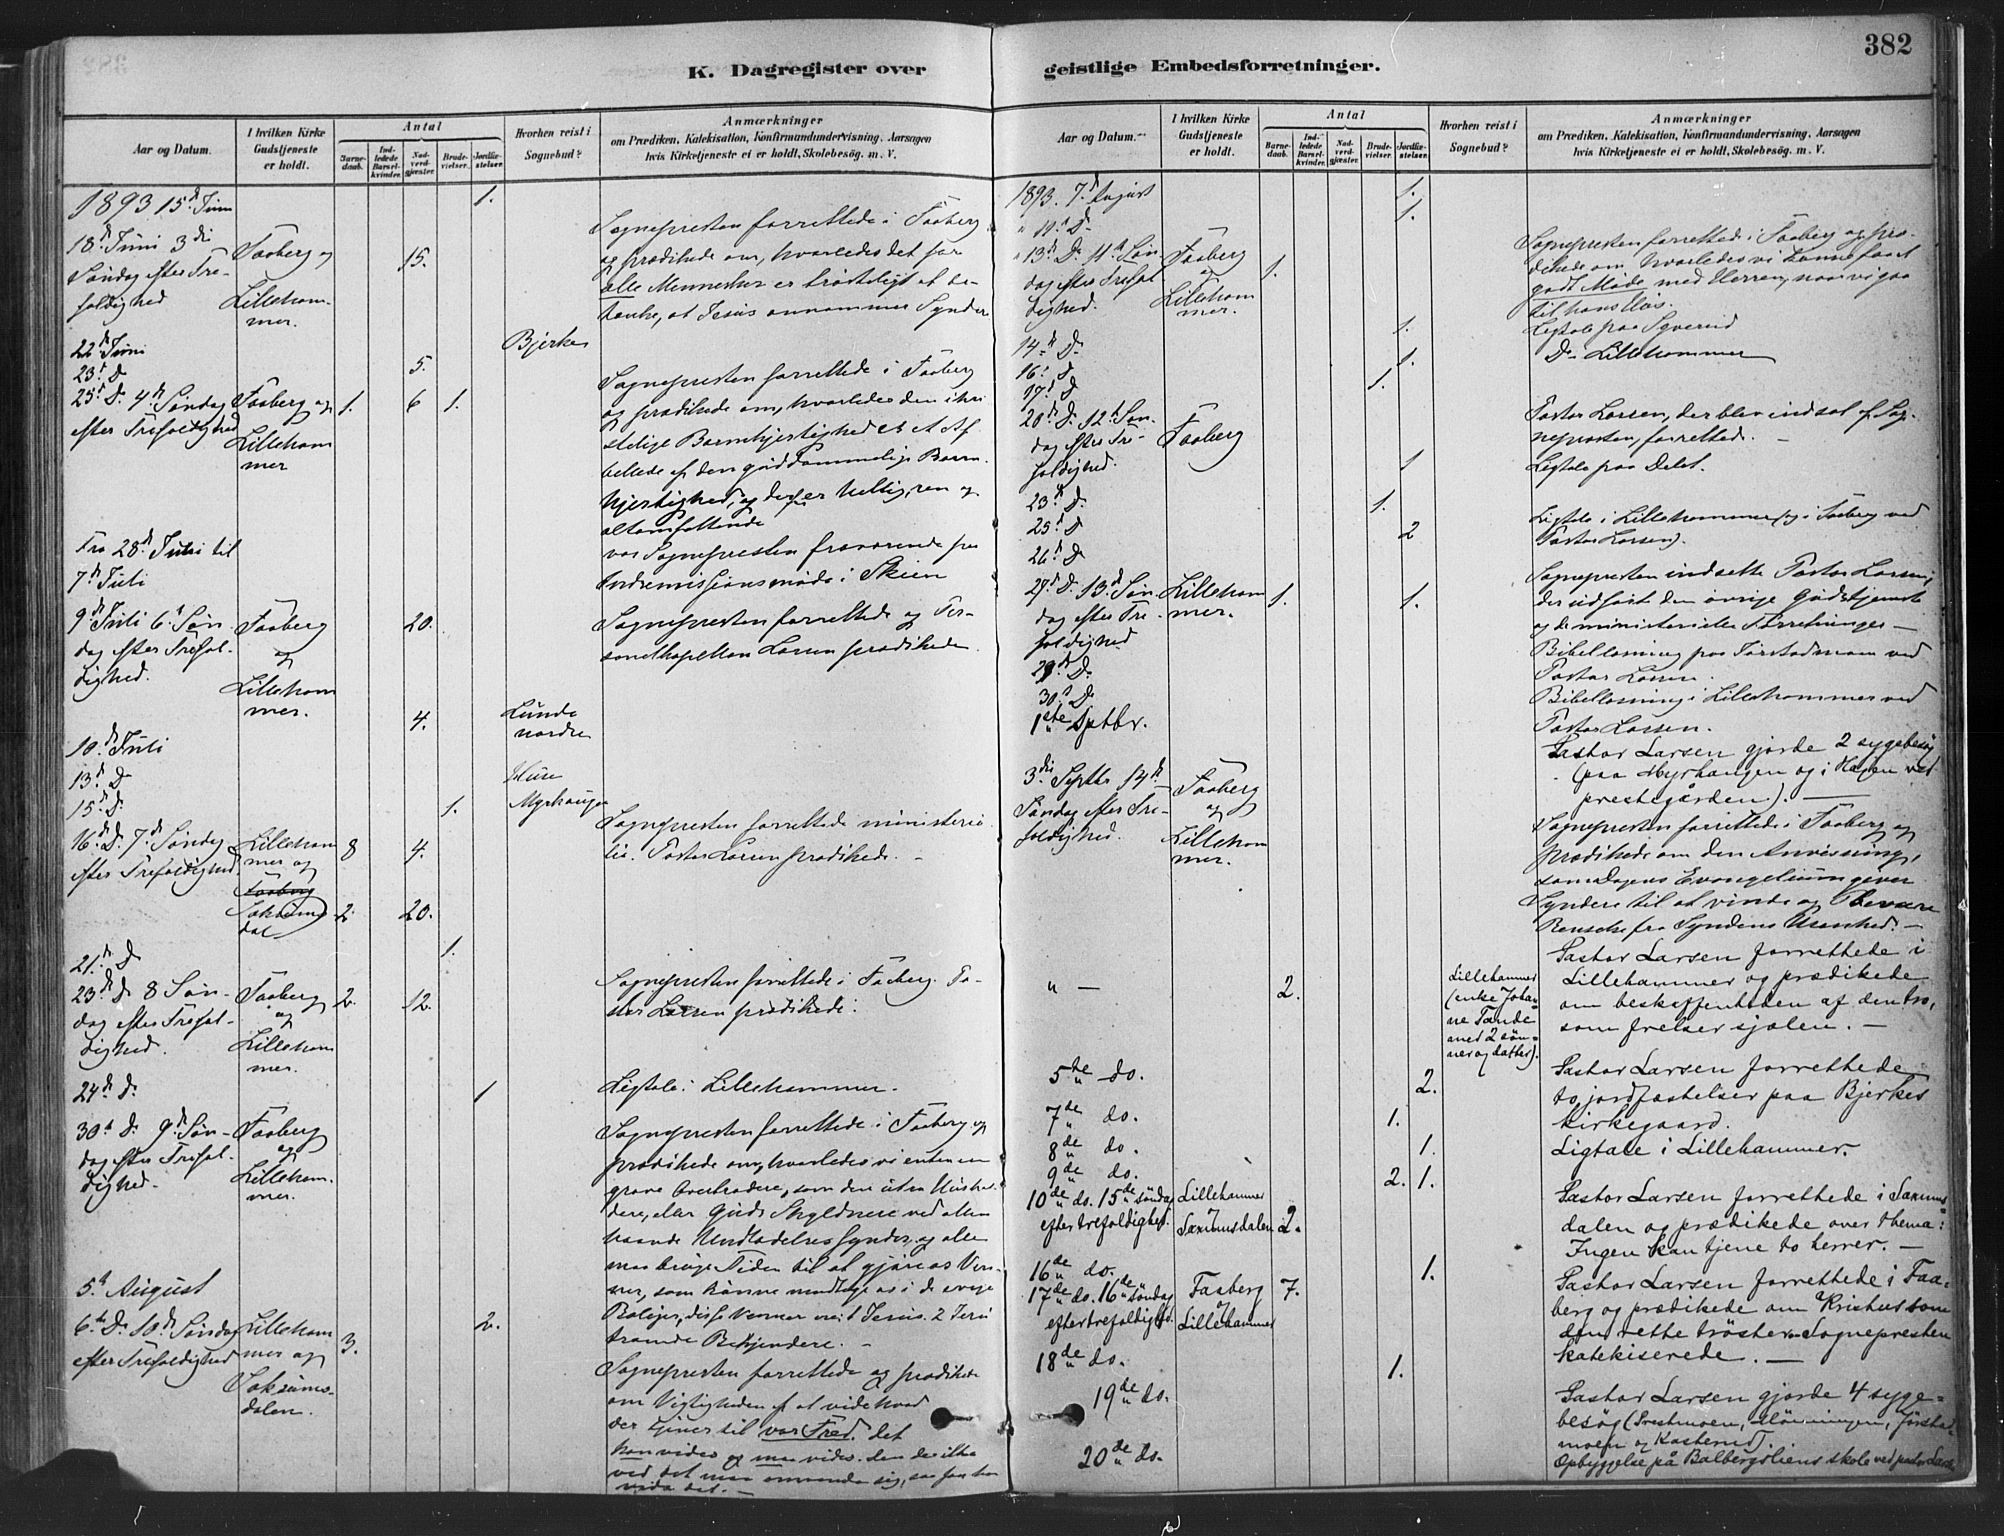 382
K. Dagregister over geistlige Embedsforretninger.
Aar og Datum.
I hvilken Kirke Gudstjeneste er holdt.
Antal
Barnedaab.
Indledede Barselkvinder.
Nadverdgjæster.
Brudevielser.
Jordfæstelser.
Hvorhen reist i Sognebud?
Anmærkninger
om Prædiken, Katekisation, Konfirmandundervisning, Aarsagen
hvis Kirketjeneste ei er holdt, Skolebesøg. m. V.
1893 15d Juni
1.
18d Juni 3die
Søndag efter Tre-
foldighed
Faaberg og
Lilleham
mer.
15.
Sognepresten forrettede i Faaberg
og prædikede om, hvorledes det for
alle Mennesker er trøsteligt at be-
tænke, at Jesus annammer Syndere
22d Juni
Bjerke
23d D
5.
25d D. 4d Søndag
efter Trefoldighed
Faaberg og
Lilleham
mer
1.
6
1.
Sognepresten forrettede i Faaberg
og prædikede om, hvorledes den kri
stelige Barmhjertighed er et Af
billede af den guddommelige Barm
hjertighed, og derfor hellig, ren og
altomfattende
Fra 28d Juni til
7d Juli
var Sognepresten fraværende paa
Indremissionsmøde i Skien
9d Juli 6d Søn
dag efter Trefol-
dighed.
Faaberg
og
Lilleham
mer.
20.
Sognepresten forrettede og Per-
sonelkapellan Larsen prædikede.
10d Juli
4.
Lunde
nordre
13d D
Huse
15d D.
1.
Myrhaugen
16d D. 7d Søndag
efter Trefoldighed
Lilleham
mer og
Faaberg
Saksums
dal
8
4.
2
20.
Sognepresten forrettede ministeri
elt. Pastor Larsen prædikede. -
21d D
1.
23d D 8 Søn-
dag efter Trefol-
dighed.
Faaberg
og
Lilleham
mer.
2.
12.
Sognepresten forrettede i Faaberg. Pa-
stor Larsen prædikede.
24d D.
1
Ligtale i Lillehammer.
30d D. 9d Søn-
dag efter Trefol-
dighed.
Faaberg
og
Lilleham
mer.
Sognepresten forrettede i Faaberg og
prædikede om, hvorledes vi enten en
grove Overtrædere, som den utro Hushol
dere, eller Guds Skyldnere ved allen
haande Undladelsessynder, og alle
maa bruge Tiden til at gjøre os Ven-
ner, som kunne modtage os i de evige
Boliger, disse Venner ere 1 Jesus. 2 Jesu
troende Bekjendere. -
5d August
6d D. 10d Søndag
efter Trefoldighed
Lilleham
mer og
Saksums-
dalen.
3.
2.
Sognepresten forrettede og prædikede
om Vigtigheden af at vide hvad
der tjener til vor Fred. det
kan vides og maa vides. den der ikke
ved det maa omvende sig, saa faar han
vide det. -
1893. 7d August
1.
" 11d D.
1.
" 13d D. 11d Søn
dag efter Trefol
dighed.
Faaberg
og
Lilleham
mer.
1.
Sognepresten forrettede i Faaberg og præ-
dikede om hvorledes vi kunne faa et
godt Møde med Herren, naar vi gaa
til hans Hus.
14d D.
1.
Ligtale paa Sverud
16d D.
1.
Do Lillehammer
17d D
1.
20d D. 12d Søn-
dag efter Tre-
foldighed.
Faaberg
Pastor Larsen, der blev indsat af Sog-
nepresten, forrettede. -
1
Ligtale paa Dalet.
23d D.
1.
25d D
2
Ligtale i Lillehammer og i Faaberg ved
Pastor Larsen).
26d D
27d D. 13d Søn
dag efter Tre-
foldighed
Lilleham
mer.
1.
1.
Sognepresten indsatte Pastor Larsen,
der udførte den øvrige Gudstjeneste
og de ministerielle Forretninger -
29d D.
Bibellæsning paa Jørstadmoen ved
Pastor Larsen.
30d D
Bibellæsning i Lillehammer ved
Pastor Larsen.
1ste Sptbr.
Pastor Larsen gjorde 2 sygebesøg
(paa Myrhaugen og i Hagen ved
prestegården). -
3die Septbr 14d
Søndag efter Tre-
foldighed.
Faaberg
og
Lilleham
mer.
Sognepresten forrettede i Faaberg og
prædikede om den Anvisning,
som Dagens Evangelium giver
Syndere til at vinde og bevare
Renselse fra Syndens Urenhed. -
" -
2.
Lillehammer
(enke Johan-
ne Tande
med 2 søn-
ner og datter).
Pastor Larsen forrettede i
Lillehammer og prædikede
om beskaffenheden af den tro,
som frelser sjælen. -
5te do.
2.
Pastor Larsen forrettede
to jordfæstelser paa Bjerkes
kirkegaard.
7de do.
1.
8de do.
1.
Ligtale i Lillehammer.
9de do.
2.
1.
10de do. 15de søndag
efter trefoldighed.
Lillehammer
og
Saxumsdalen
2.
Pastor Larsen forrettede i Saxums
dalen og prædikede over thema:
Ingen kan tjene to herrer. -
16de do.
1.
17de do. 16de søndag
efter trefoldighed.
Faaberg
og
Lillehammer
7.
Pastor Larsen forrettede i Faa-
berg og prædikede om Kristus som
den rette trøster. Sognepresten
katekiserede. -
18de do.
1.
19de do.
Pastor Larsen gjorde 4 syge-
besøg (Prestmoen, Jørstad
moen og Kasterud).
20de do.
Opbyggelse på Balbergsliens skole ved pastor Larsen